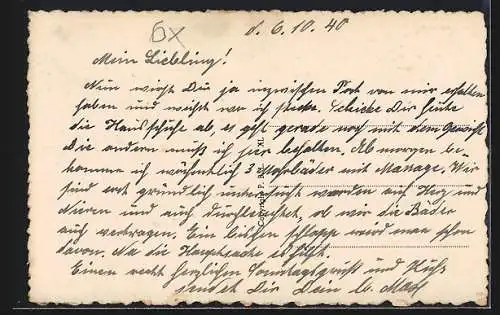 6x
d. 6.10.40
Mein Liebling!
Nun wirst Du ja inzwischen Post von mir erhalten
haben und weißt wo ich stecke. Schicke Dir heute
die Hausschuhe ab, es geht gerade noch mit dem Gewicht
Die andern muß ich hier behalten. Ab morgen be-
komme ich wöchentlich 3 Moorbäder mit Massage. Wir
sind erst gründlich untersucht worden auf Herz und
Nieren und auch durchleuchtet, ob wir die Bäder
auch vertragen. Ein bißchen schlapp wird man schon
davon. Na die Hauptsache es hilft.
Einen recht herzlichen Sonntagsgruß und Kuß
sendet Dir Dein lb.
Copyright P.